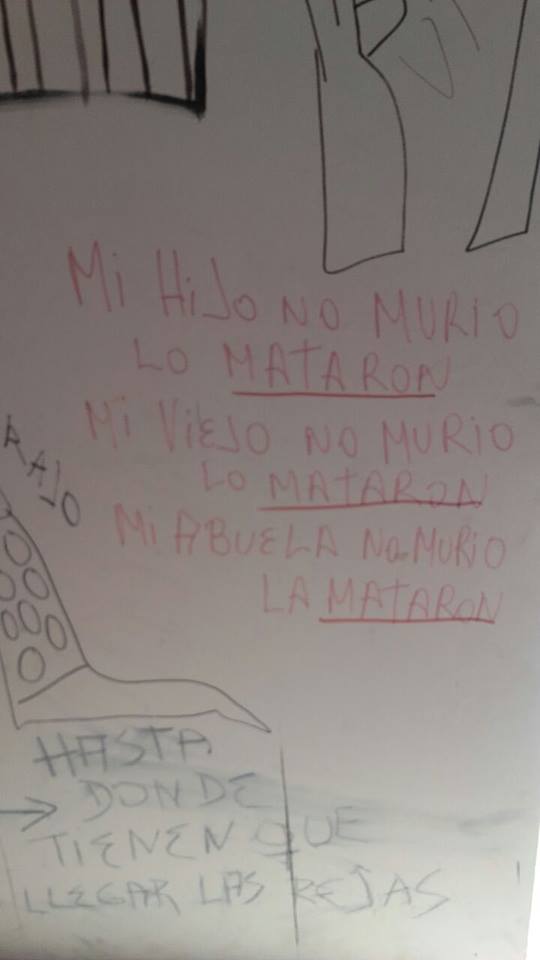 Mi HiJo NO MURIO
LO MATARON
Mi ViEJO NO MURIO
LO MATARON
Mi ABUELA No MURiO
LA MATARON
RAJO
HASTA
DONDE
TIENEN QUE
LLEGAR LAS REJAS